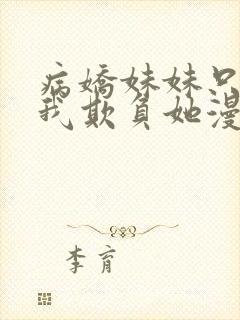 病嬌妹妹只
我欺負她漫
李育